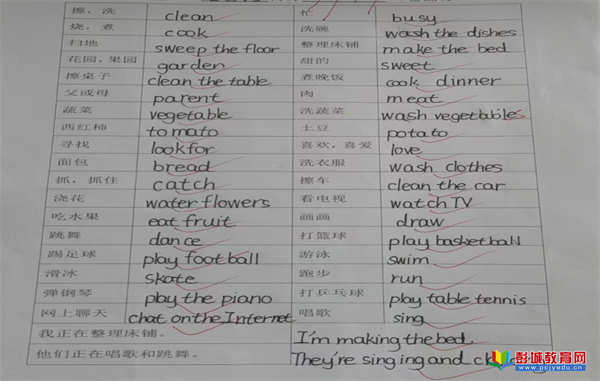 擦，洗 clean 忙 busy
烧，煮 cook 洗碗 wash the dishes
扫地 sweep the floor 整理床铺 make the bed
花园，果园 garden 甜的 sweet
擦桌子 clean the table 煮晚饭 cook dinner
父或母 parent 肉 meat
蔬菜 vegetable 洗蔬菜 wash vegetables
西红柿 tomato 土豆 potato
寻找 look for 喜欢，喜爱 love
面包 bread 洗衣服 wash clothes
抓，抓住 catch 擦车 clean the car
浇花 water flowers 看电视 watch TV
吃水果 eat fruit 画画 draw
跳舞 dance 打篮球 play basketball
踢足球 play football 游泳 swim
滑冰 skate 跑步 run
弹钢琴 play the piano 打乒乓球 play table tennis
网上聊天 chat on the Internet 唱歌 sing
我正在整理床铺。 I'm making the bed.
他们正在唱歌和跳舞。 They're singing and
彭城教育网
www.pcjyedu.cn